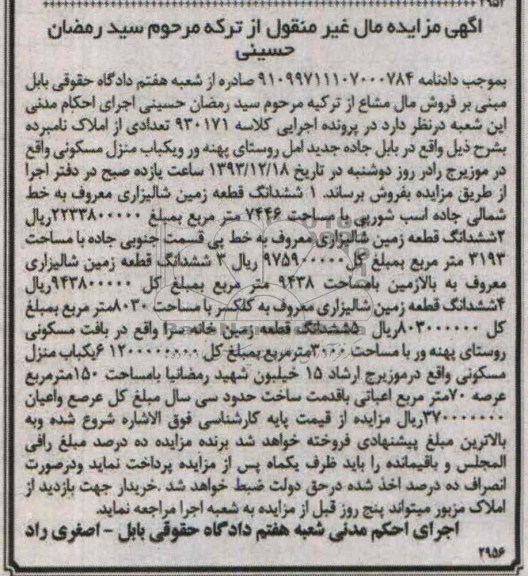 ۲۹۵۲
آگهی مزایده مال غیر منقول از ترکه مرحوم سید رمضان
حسینی
بموجب دادنامه ۹۱۰۹۹۷۱۱۱۰۷۰۰۰۷۸۴ صادره از شعبه هفتم دادگاه حقوقی بابل
مبنی بر فروش مال مشاع از ترکیه مرحوم سید رمضان حسینی اجرای احکام مدنی
این شعبه درنظر دارد در پرونده اجرایی کلاسه ۹۳۰۱۷۱ تعدادی از املاک نامبرده
بشرح ذیل واقع در بابل جاده جدید امل روستای پهنه ور ویکباب منزل مسکونی واقع
در موزیرج رادر روز دوشنبه در تاریخ ۱۳۹۳/۱۲/۱۸ ساعت یازده صبح در دفتر اجرا
از طریق مزایده بفروش برساند. ۱ ششدانگ قطعه زمین شالیزاری معروف به خط
شمالی جاده اسب شورپی با مساحت ۷۴۴۶ متر مربع بمبلغ ۲۲۳۳۸۰۰۰۰۰ریال
۲ششدانگ قطعه زمین شالیزاری معروف به خط پی قسمت جنوبی جاده با مساحت
۳۱۹۳ متر مربع بمبلغ کل ۹۷۵۹۰۰۰۰۰ ریال ۳ ششدانگ قطعه زمین شالیزاری
معروف به بالازمین بامساحت ۹۴۳۸ متر مربع بمبلغ کل ۹۴۳۸۰۰۰۰۰ریال
۴ششدانگ قطعه زمین شالیزاری معروف به کلکسر با مساحت ۸۰۳۰متر مربع بمبلغ
کل ۸۰۳۰۰۰۰۰۰ریال ۵ششدانگ قطعه زمین خانه سرا واقع در بافت مسکونی
روستای پهنه ور با مساحت ۳۰۰۰مترمربع بمبلغ کل ۱۲۰۰۰۰۰۰۰۰ ۶یکباب منزل
مسکونی واقع درموزیرج ارشاد ۱۵ خیلبون شهید رمضانیا بامساحت ۱۵۰مترمربع
عرصه ۷۰متر مربع اعیانی باقدمت ساخت حدود سی سال مبلغ کل عرصع واعیان
۳۷۰۰۰۰۰۰۰ریال مزایده از قیمت پایه کارشناسی فوق الاشاره شروع شده وبه
بالاترین مبلغ پیشنهادی فروخته خواهد شد برنده مزایده ده درصد مبلغ رافی
المجلس و باقیمانده را باید ظرف یکماه پس از مزایده پرداخت نماید ودرصورت
انصراف ده درصد اخذ شده درحق دولت ضبط خواهد شد .خریدار جهت بازدید از
املاک مزبور میتواند پنج روز قبل از مزایده به شعبه اجرا مراجعه نماید.
اجرای احکم مدنی شعبه هفتم دادگاه حقوقی بابل - اصغری راد
۲۹۵۶